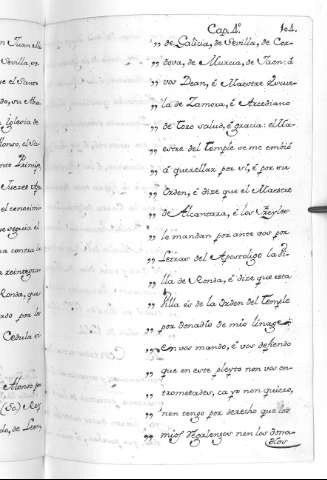 n Juan el
Sevilla, es
ue el Santo
do, su Abu
Iglesia de
lonso, el Sa
nco Princip
Jueces Ap
el censisimo
reguia el
na contra la
a reintegrar
Ronda, que
ado por lo
Cedula ei
Alonso po
(So) Rey
do, de Leon,
Cap. 4.º 104.
,, de Galicia, de Sevilla, de Cor-
,, dova, de Murcia, de Jaen: á
,, vos Dean, é Maestre Escue-
,, la de Zamora, é Arzediano
,, de Toro salud, é gracia: el Ma-
,, estre del Temple ve me embió
,, á querellar por sí, é por su
,, Orden, é dize que el Maestre
,, de Alcantara, é los Freyles
,, le mandan por ante vos por
,, Letras del Apostoligo la Vi-
,, lla de Ronda, é dize que esta
,, Villa és de la Orden del Temple
,, por donadío de mio linage
,, en vos mando, é vos defiendo
,, que en este pleyto non vos en-
,, trometades, ca yo non quiero,
,, nen tengo por derecho que los
,, mios Regalengos nen los dona-
díos